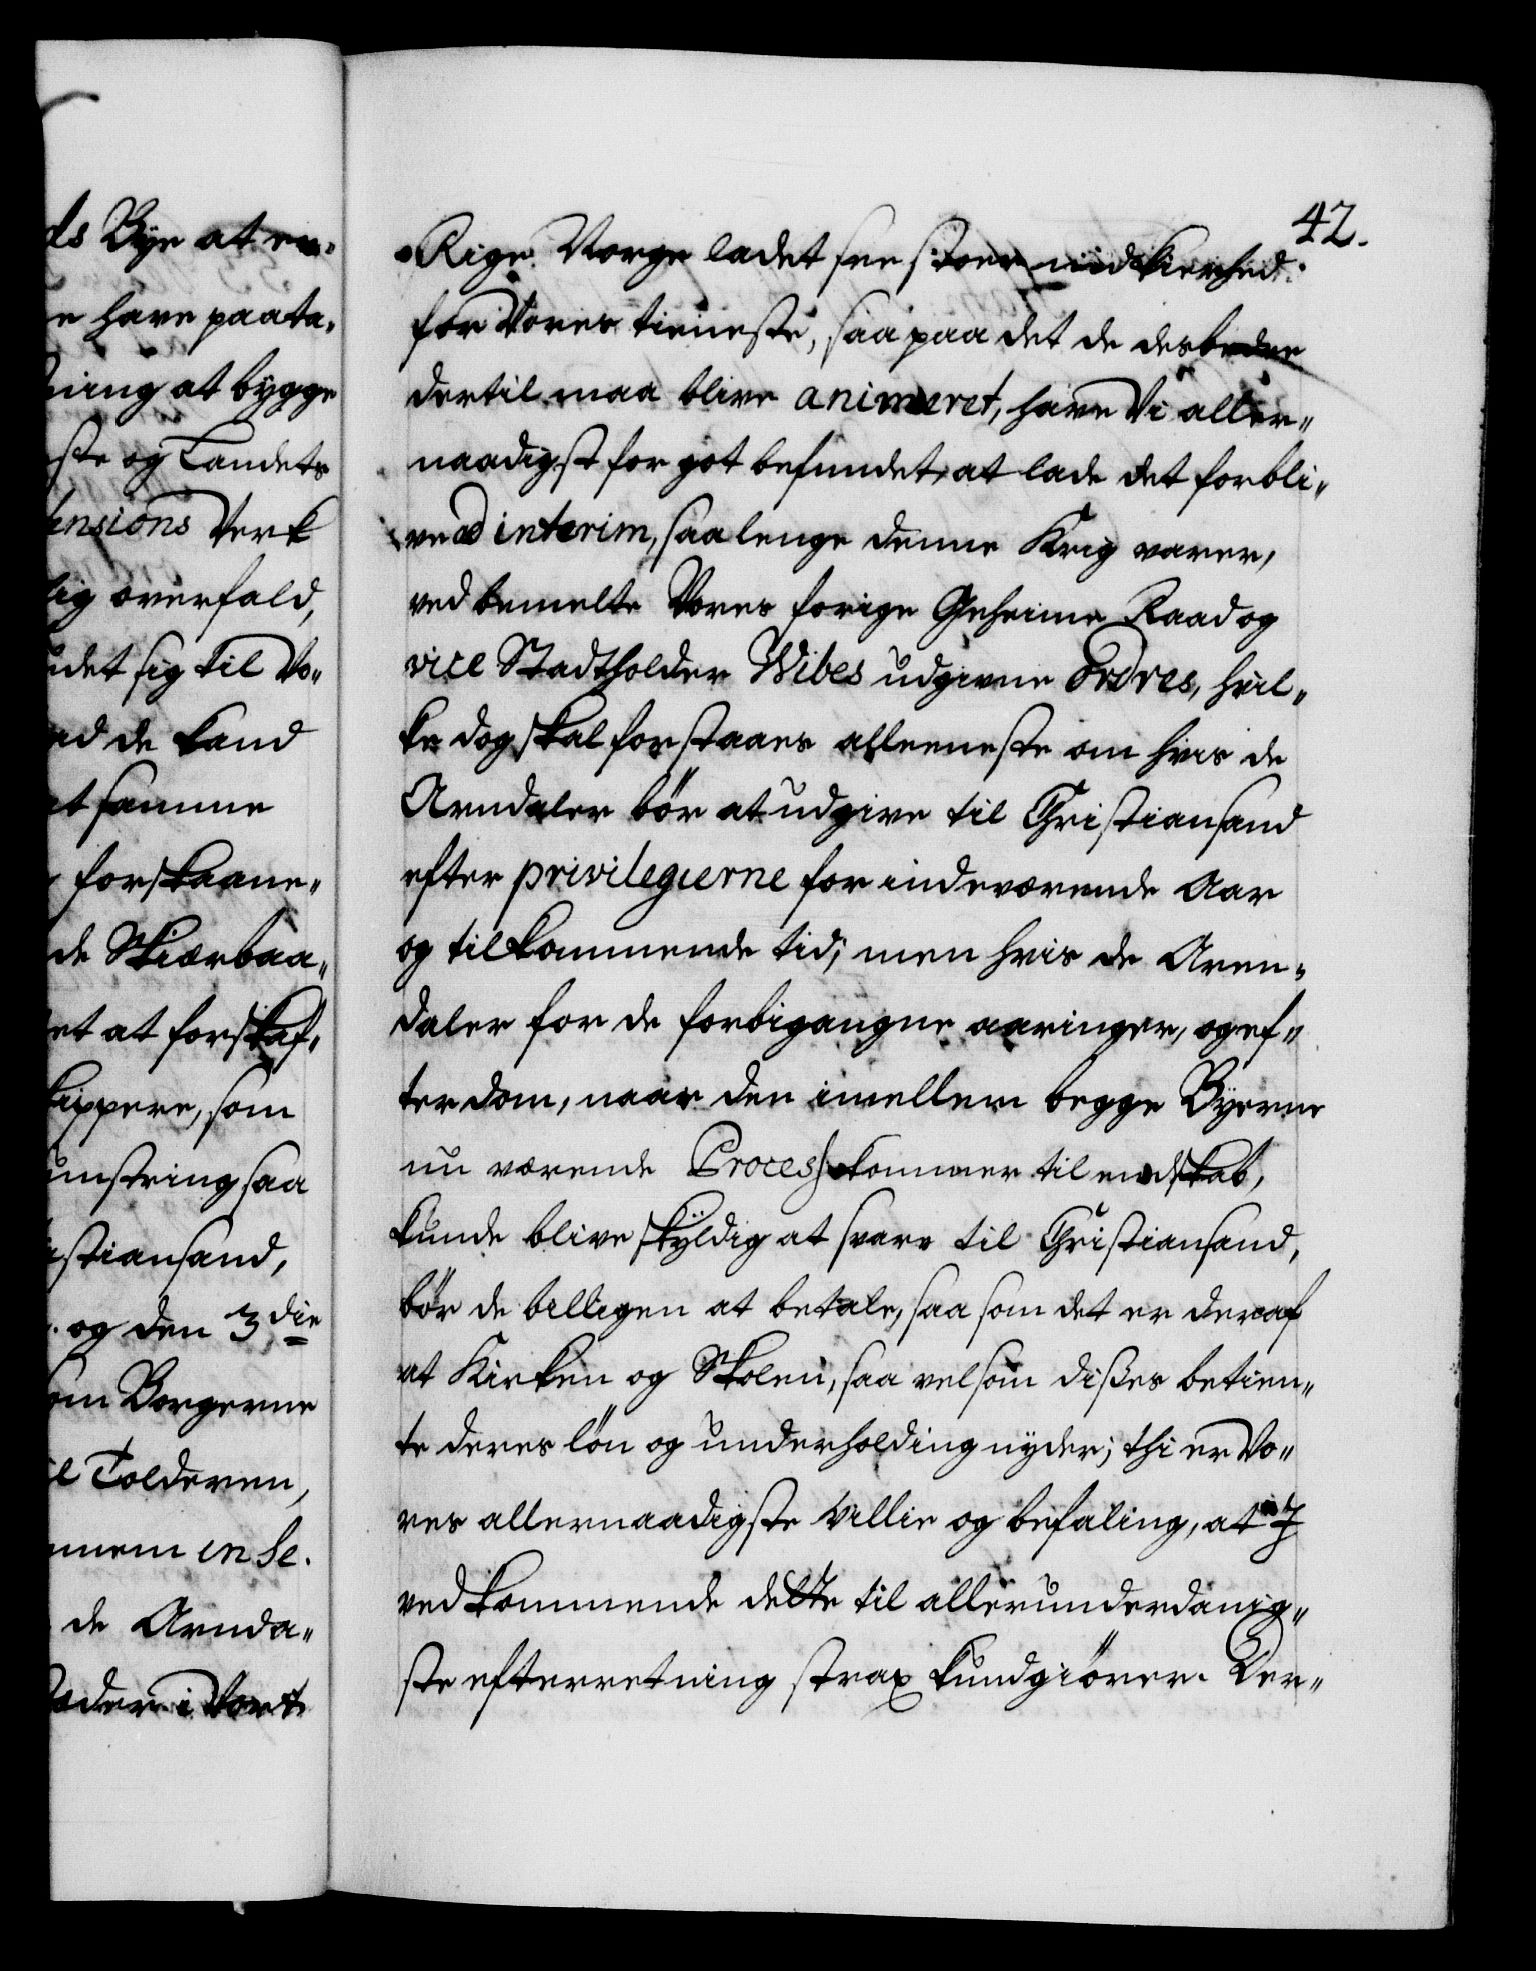 ds Bye at en-
e have paata-
ning at bygge
ste og Landets
ensions Verk
lig overfald,
det sig til Vo-
ad de kand
at samme
forskaane-
de Skiærbaa-
et at forskaf-
kippere, som
mnstring saa
istiansand,
og den 3die
om Borgerne
il Tolderen,
mmem en se.
de Arnda-
æder i Vort
42.
Rige Norge ladet see stoer nidkierhed
for Vores tieneste, saa paa det de desbedre
dertil maa blive animeret, have Vi aller-
naadigst for got befundet, at lade det forbli-
ve ad interim, saa lenge denne Krig varer,
ved bemelte Vores forige Geheime Raad og
vice Stadtholder Wibes udgivne Ordres, hvil-
ke dog skal forstaaes alleeneste om hvis de
Arndaler bör at udgive til Christiansand
efter privilegierne for indeværende Aar
og tilkommende tid; men hvis de Aren-
daler for de forbigangne aaringer, og ef-
ter dom, naar den imellem begge Byerne
nu værende Process kommer til endskab,
kunde blive skÿldig at svare til Christiansand,
bör de billigen at betale, saa som det er deraf
at Kirken og Skolen, saa velsom dißes betien-
te deres lön og underholding nyder; thi er Vo-
res allernaadigste villie og befaling, at I
vedkommende dette til allerunderdanig-
ste efterretning strax kundgiörer. Der-